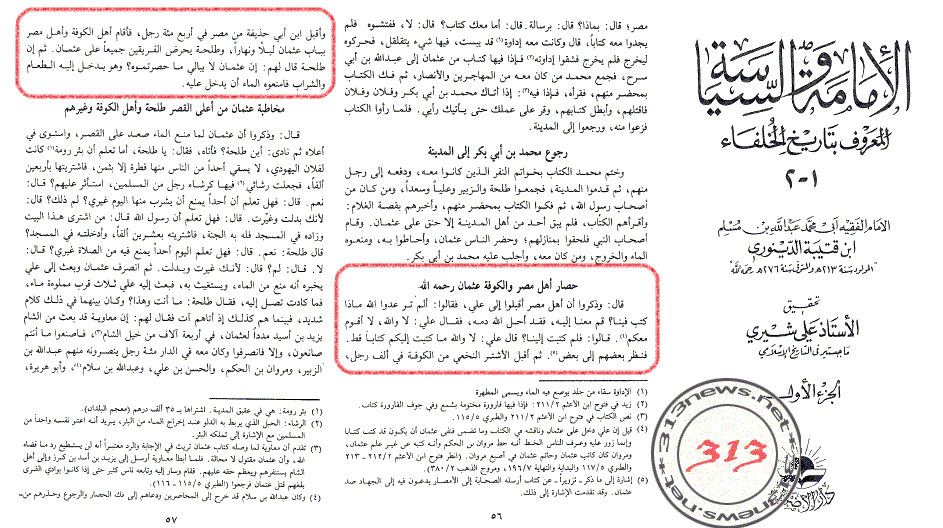 الإمامة والسياسة
المعروف بتاريخ الخلفاء
١-٢
الإمام الفقيه أبي محمد عبد الله بن مسلم
ابن قتيبة الدينوري
تحقيق
الأستاذ علي شيري
ماجستير في التاريخ الإسلامي
الجزء الأول
دار الأضواء
313news.net
313
مصر؛ قال: بماذا؟ قال: برسالة. قال: أما معك كتاب؟ قال: لا، ففتشوه فلم
يجدوا معه كتاباً، قال: وكانت معه إداوة(١) قد يبست، فيها شيء يتقلقل، فحركوه
ليخرج فلم يخرج فشقوا إداوته(٢) فإذا فيها كتاب من عثمان إلى عبدالله بن أبي
سرح، فجمع محمد من كان معه من المهاجرين والأنصار، ثم فك الكتاب
بمحضر منهم، فقرأه، فإذا فيه(٣): إذا أتاك محمد بن أبي بكر وفلان وفلان
فاقتلهم، وأبطل كتابهم، وقر على عملك حتى يأتيك رأيي. فلما رأوا الكتاب
فزعوا منه، ورجعوا إلى المدينة.
رجوع محمد بن أبي بكر إلى المدينة
وختم محمد الكتاب بخواتم النفر الذين كانوا معه، ودفعه إلى رجل
منهم، ثم قدموا المدينة، فجمعوا طلحة والزبير وعلياً وسعداً، ومن كان من
أصحاب رسول الله، ثم فكوا الكتاب بمحضر منهم، وأخبرهم بقصة الغلام:
وأقرأهم الكتاب، فلم يبق أحد من أهل المدينة إلا حنق على عثمان. وقام
أصحاب النبي فلحقوا بمنازلهم؛ وحضر الناس عثمان، وأحاطوا به، ومنعوه
الماء والخروج، ومن كان معه، وأجلب عليه محمد بن أبي بكر.
حصار أهل مصر والكوفة عثمان رحمه الله
قال: وذكروا أن أهل مصر أقبلوا إلى علي، فقالوا: ألم تر عدو الله ماذا
كتب فينا؟ قم معنا إليه، فقد أحل الله دمه، فقال علي: لا والله، لا أقوم
معكم(٤). قالوا: فلم كتبت إلينا؟ قال علي: لا والله ما كتبت إليكم كتاباً قط.
فنظر بعضهم إلى بعض(٥). ثم أقبل الأشتر النخعي من الكوفة في ألف رجل،
(١) الإداوة سقاء من جلد يوضع فيه الماء ويسمى المطهرة
(٢) زيد في فتوح ابن الأعثم ٢١١/٢: فإذا فيها قارورة مختومة بشمع وفي جوف القارورة كتاب.
(٣) نص الكتاب في فتوح ابن الأعثم ٢١١/٢ والطبري ١١٥/٥
(٤) قيل إن علي دخل على عثمان وناقشه في الكتاب وما تضمن فنفى عثمان أن يكون قد كتب كتابا
وإنما زور عليه وعرف الناس الخط أنه خط مروان بن الحكم وأنه كتبه عن غير علم عثمان،
ومروان كان كاتب عثمان وخاتم عثمان في أصبع مروان. (انظر فتوح ابن الأعثم ٢١٢/٢ - ٢١٣
والطبري ١١٧/٥ والبداية والنهاية ١٩٦/٧ ومروج الذهب ٣٨٠/٢).
(٥) إشارة إلى ما ذكر - تزويراً - عن كتاب أرسله الصحابة إلى الأمصار يدعون فيه إلى الجهاد ضد
عثمان. وقد تقدمت الإشارة إلى ذلك.
٥٦
وأقبل ابن أبي حذيفة من مصر في أربع مئة رجل، فأقام أهل الكوفة وأهل مصر
بباب عثمان ليلاً ونهاراً، وطلحة يحرض الفريقين جميعاً على عثمان. ثم إن
طلحة قال لهم: إن عثمان لا يبالي ما حصرتموه؟ وهو يدخل إليه الطعام
والشراب فامنعوه الماء أن يدخل عليه.
مخاطبة عثمان من أعلى القصر طلحة وأهل الكوفة وغيرهم
قال: وذكروا أن عثمان لما منع الماء صعد على القصر، واستوى في
أعلاه ثم نادى: أين طلحة؟ فأتاه، فقال: يا طلحة، أما تعلم أن بئر رومة(١) كانت
لفلان اليهودي، لا يسقي أحداً من الناس منها قطرة إلا بثمن، فاشتريتها بأربعين
ألفاً، فجعلت رشائي(٢) فيها كرشاء رجل من المسلمين، استأثر عليهم؟ قال:
نعم. قال: فهل تعلم أن أحداً يمنع أن يشرب منها اليوم غيري؟ لم ذلك؟ قال:
لأنك بدلت وغيرت. قال: فهل تعلم أن رسول الله قال: من اشترى هذا البيت
وزاده في المسجد فله به الجنة، فاشتريته بعشرين ألفاً، وأدخلته في المسجد؟
قال طلحة: نعم. قال: فهل تعلم اليوم أحداً يمنع فيه من الصلاة غيري؟ قال:
لا. قال: لم؟ قال: لأنك غيرت وبدلت. ثم انصرف عثمان وبعث إلى علي
يخبره أنه منع من الماء، ويستغيث به، فبعث إليه علي ثلاث قرب مملوءة ماء،
فما كادت تصل إليه، فقال طلحة: ما أنت وهذا؟ وكان بينهما في ذلك كلام
شديد، فبينما هم كذلك إذ أتاهم آت فقال لهم: إن معاوية قد بعث من الشام
يزيد بن أسيد مدداً لعثمان، في أربعة آلاف من خيل الشام(٣)، فاصنعوا ما أنتم
صانعون، وإلا فانصرفوا وكان معه في الدار مئة رجل ينصرونه منهم عبدالله بن
الزبير، ومروان بن الحكم، والحسن بن علي، وعبدالله بن سلام(٤)، وأبو هريرة،
(١) بئر رومة: هي في عقيق المدينة. اشتراها بـ ٣٥ ألف درهم (معجم البلدان).
(٢) الرشاء: الحبل الذي يربط به الدلو عند إخراج الماء من البئر، يريد أنه اعتبر نفسه واحداً من
المسلمين مع الإشارة إلى تملكه البئر.
(٣) تقدم أن معاوية لما وصله كتاب عثمان تريث في الإجابة والرد معتبراً أنه لن يستطيع رد ما قضاه
الله، وأن عثمان مقتول لا محالة. فلما أبطأ معاوية أرسل إلى يزيد بن أسد بن كرز وإلى أهل
الشام يستنفرهم ويعظم حقه عليهم. فقام وسار إليه وتابعه ناس كثير حتى إذا كانوا بوادي القرى
بلغهم قتل عثمان فرجعوا (الطبري ١١٥/٥ - ١١٦).
(٤) وكان عبدالله بن سلام قد خرج إلى المحاصرين ودعاهم إلى فك الحصار والرجوع وحذرهم من-
٥٧